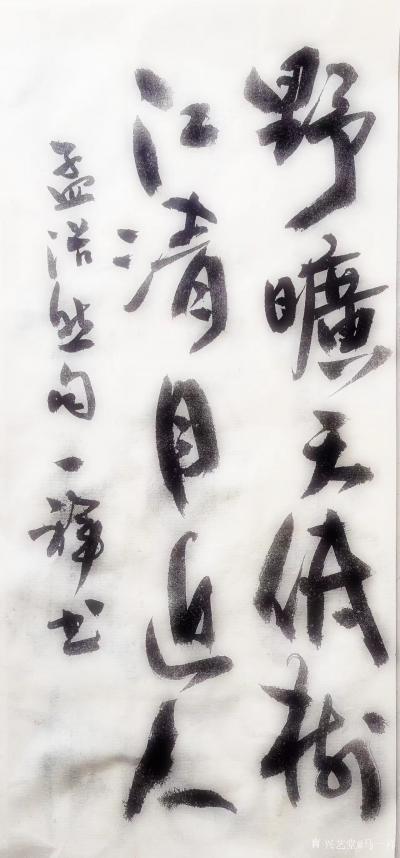 野曠天低樹
江清月近人
孟浩然句一书
兴艺堂@马一